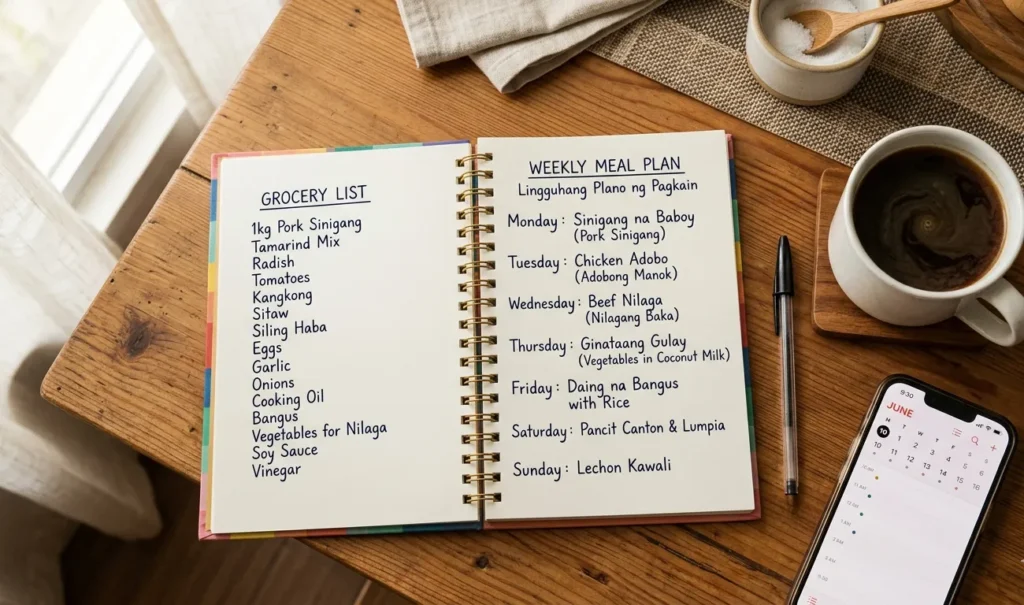 GROCERY LIST
1kg Pork Sinigang
Tamarind Mix
Radish
Tomatoes
Kangkong
Sitaw
Siling Haba
Eggs
Garlic
Onions
Cooking Oil
Bangus
Vegetables for Nilaga
Soy Sauce
Vinegar
WEEKLY MEAL PLAN
Lingguhang Plano ng Pagkain
Monday : Sinigang na Baboy
(Pork Sinigang)
Tuesday : Chicken Adobo
(Adobong Manok)
Wednesday : Beef Nilaga
(Nilagang Baka)
Thursday : Ginataang Gulay
(Vegetables in Coconut Milk)
Friday : Daing na Bangus
with Rice
Saturday : Pancit Canton & Lumpia
Sunday : Lechon Kawali
9:30
JUNE
10 1 2 3 4 5 6
10 11 12 13 14 15 16